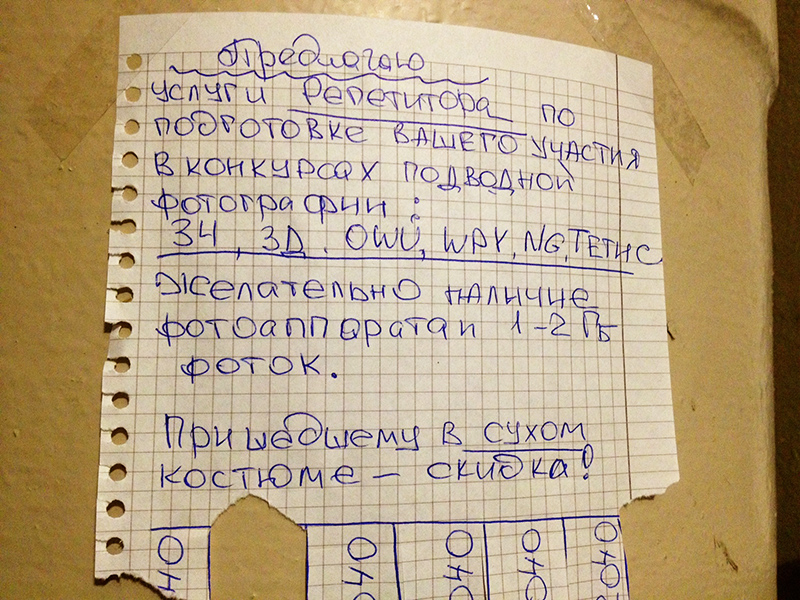 Предлагаю
услуги репетитора по
подготовке вашего участия
в конкурсах подводной
фотографии:
ЗЧ, 3Д, OWU, WPY, NG, ТЕТИС
Желательно наличие
фотоаппарата и 1-2 Гб
фоток.
Пришедшему в сухом
костюме – скидка!
40
040
040
040
8040